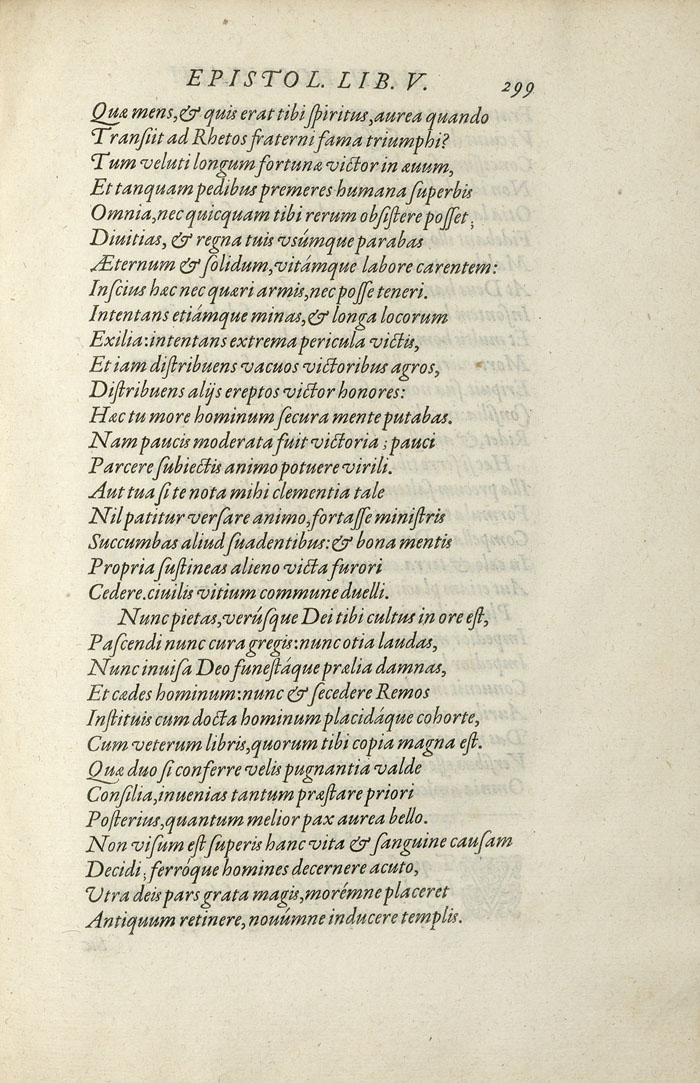 EPISTOL. LIB. V. 299
Quæ mens,& quis erat tibi ſpiritus,aurea quando
Tranſiit ad Rhetos fraterni fama triumphi?
Tum veluti longum fortunæ victor in æuum,
Et tanquam pedibus premeres humana ſuperbis
Omnia,nec quicquam tibi rerum obſiſtere poſſet;
Diuitias, & regna tuis vsúmque parabas
Æternum & ſolidum,vitámque labore carentem:
Inſcius hæc nec quæri armis,nec poſſe teneri.
Intentans etiámque minas,& longa locorum
Exilia:intentans extrema pericula victis,
Et iam diſtribuens vacuos victoribus agros,
Diſtribuens alijs ereptos victor honores:
Hæc tu more hominum ſecura mente putabas.
Nam paucis moderata fuit victoria; pauci
Parcere ſubiectis animo potuere virili.
Aut tua ſi te nota mihi clementia tale
Nil patitur verſare animo,fortaſſe miniſtris
Succumbas aliud ſuadentibus:& bona mentis
Propria ſuſtineas alieno victa furori
Cedere.ciuilis vitium commune duelli.
Nunc pietas,verúſque Dei tibi cultus in ore eſt,
Paſcendi nunc cura gregis:nunc otia laudas,
Nunc inuiſa Deo funeſtáque prælia damnas,
Et cædes hominum:nunc & ſecedere Remos
Inſtituis cum docta hominum placidáque cohorte,
Cum veterum libris,quorum tibi copia magna eſt.
Quæ duo ſi conferre velis pugnantia valde
Conſilia,inuenias tantum præſtare priori
Poſterius,quantum melior pax aurea bello.
Non viſum eſt ſuperis hanc vita & ſanguine cauſam
Decidi; ferróque homines decernere acuto,
Vtra deis pars grata magis,morémne placeret
Antiquum retinere, nouúmne inducere templis.